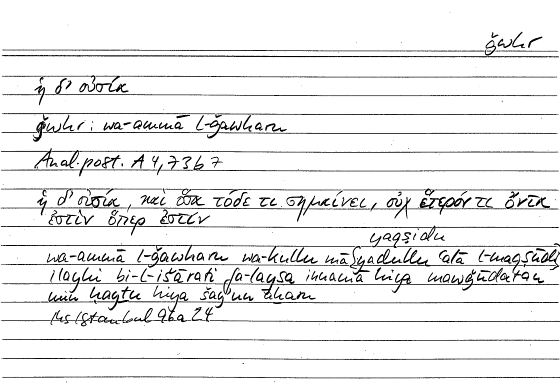 ǧwhr
ἡ δ' οὐσία
ǧwhr: wa-ammā l-ǧawharu
Anal. post. A 4, 73b7
ἡ δ' οὐσία, καὶ ὅσα τόδε τι σημαίνει, οὐχ ἕτερόν τι ὄντα
ἐστὶν ὅπερ ἐστίν
yaqṣidu
wa-ammā l-ǧawharu wa-kullu mā yadullu ʿalā l-maqṣūdi
ilayhi bi-l-išārati fa-laysa innamā hiya mawǧūdatan
min ḥayṯu hiya šayʾun āḫaru
Ms Istanbul 24